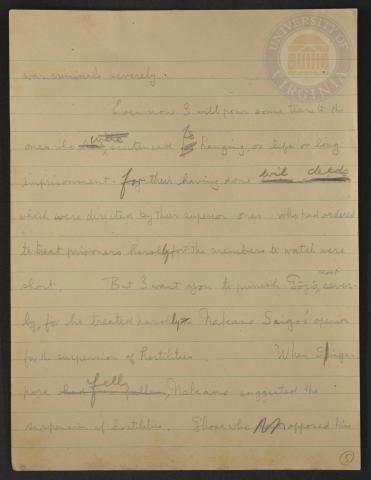 UNIVERSITY OF VIRGINIA
war criminals severely.
Even now I will pour some tears to the
ones who were sentenced to hanging, or life or long
imprisonment. for their having done evil deeds
which were directed by their superior ones who had ordered
to treat prisoners harshly for the members to watch were
short. But I want you to punish Tōjō, most sever-
ly, for he treated harshly Nakano Seigo's opinion
for the suspension of hostilities. When Singa-
pore fell, Nakano suggested the
suspension of hostilities. Those who opposed him
5